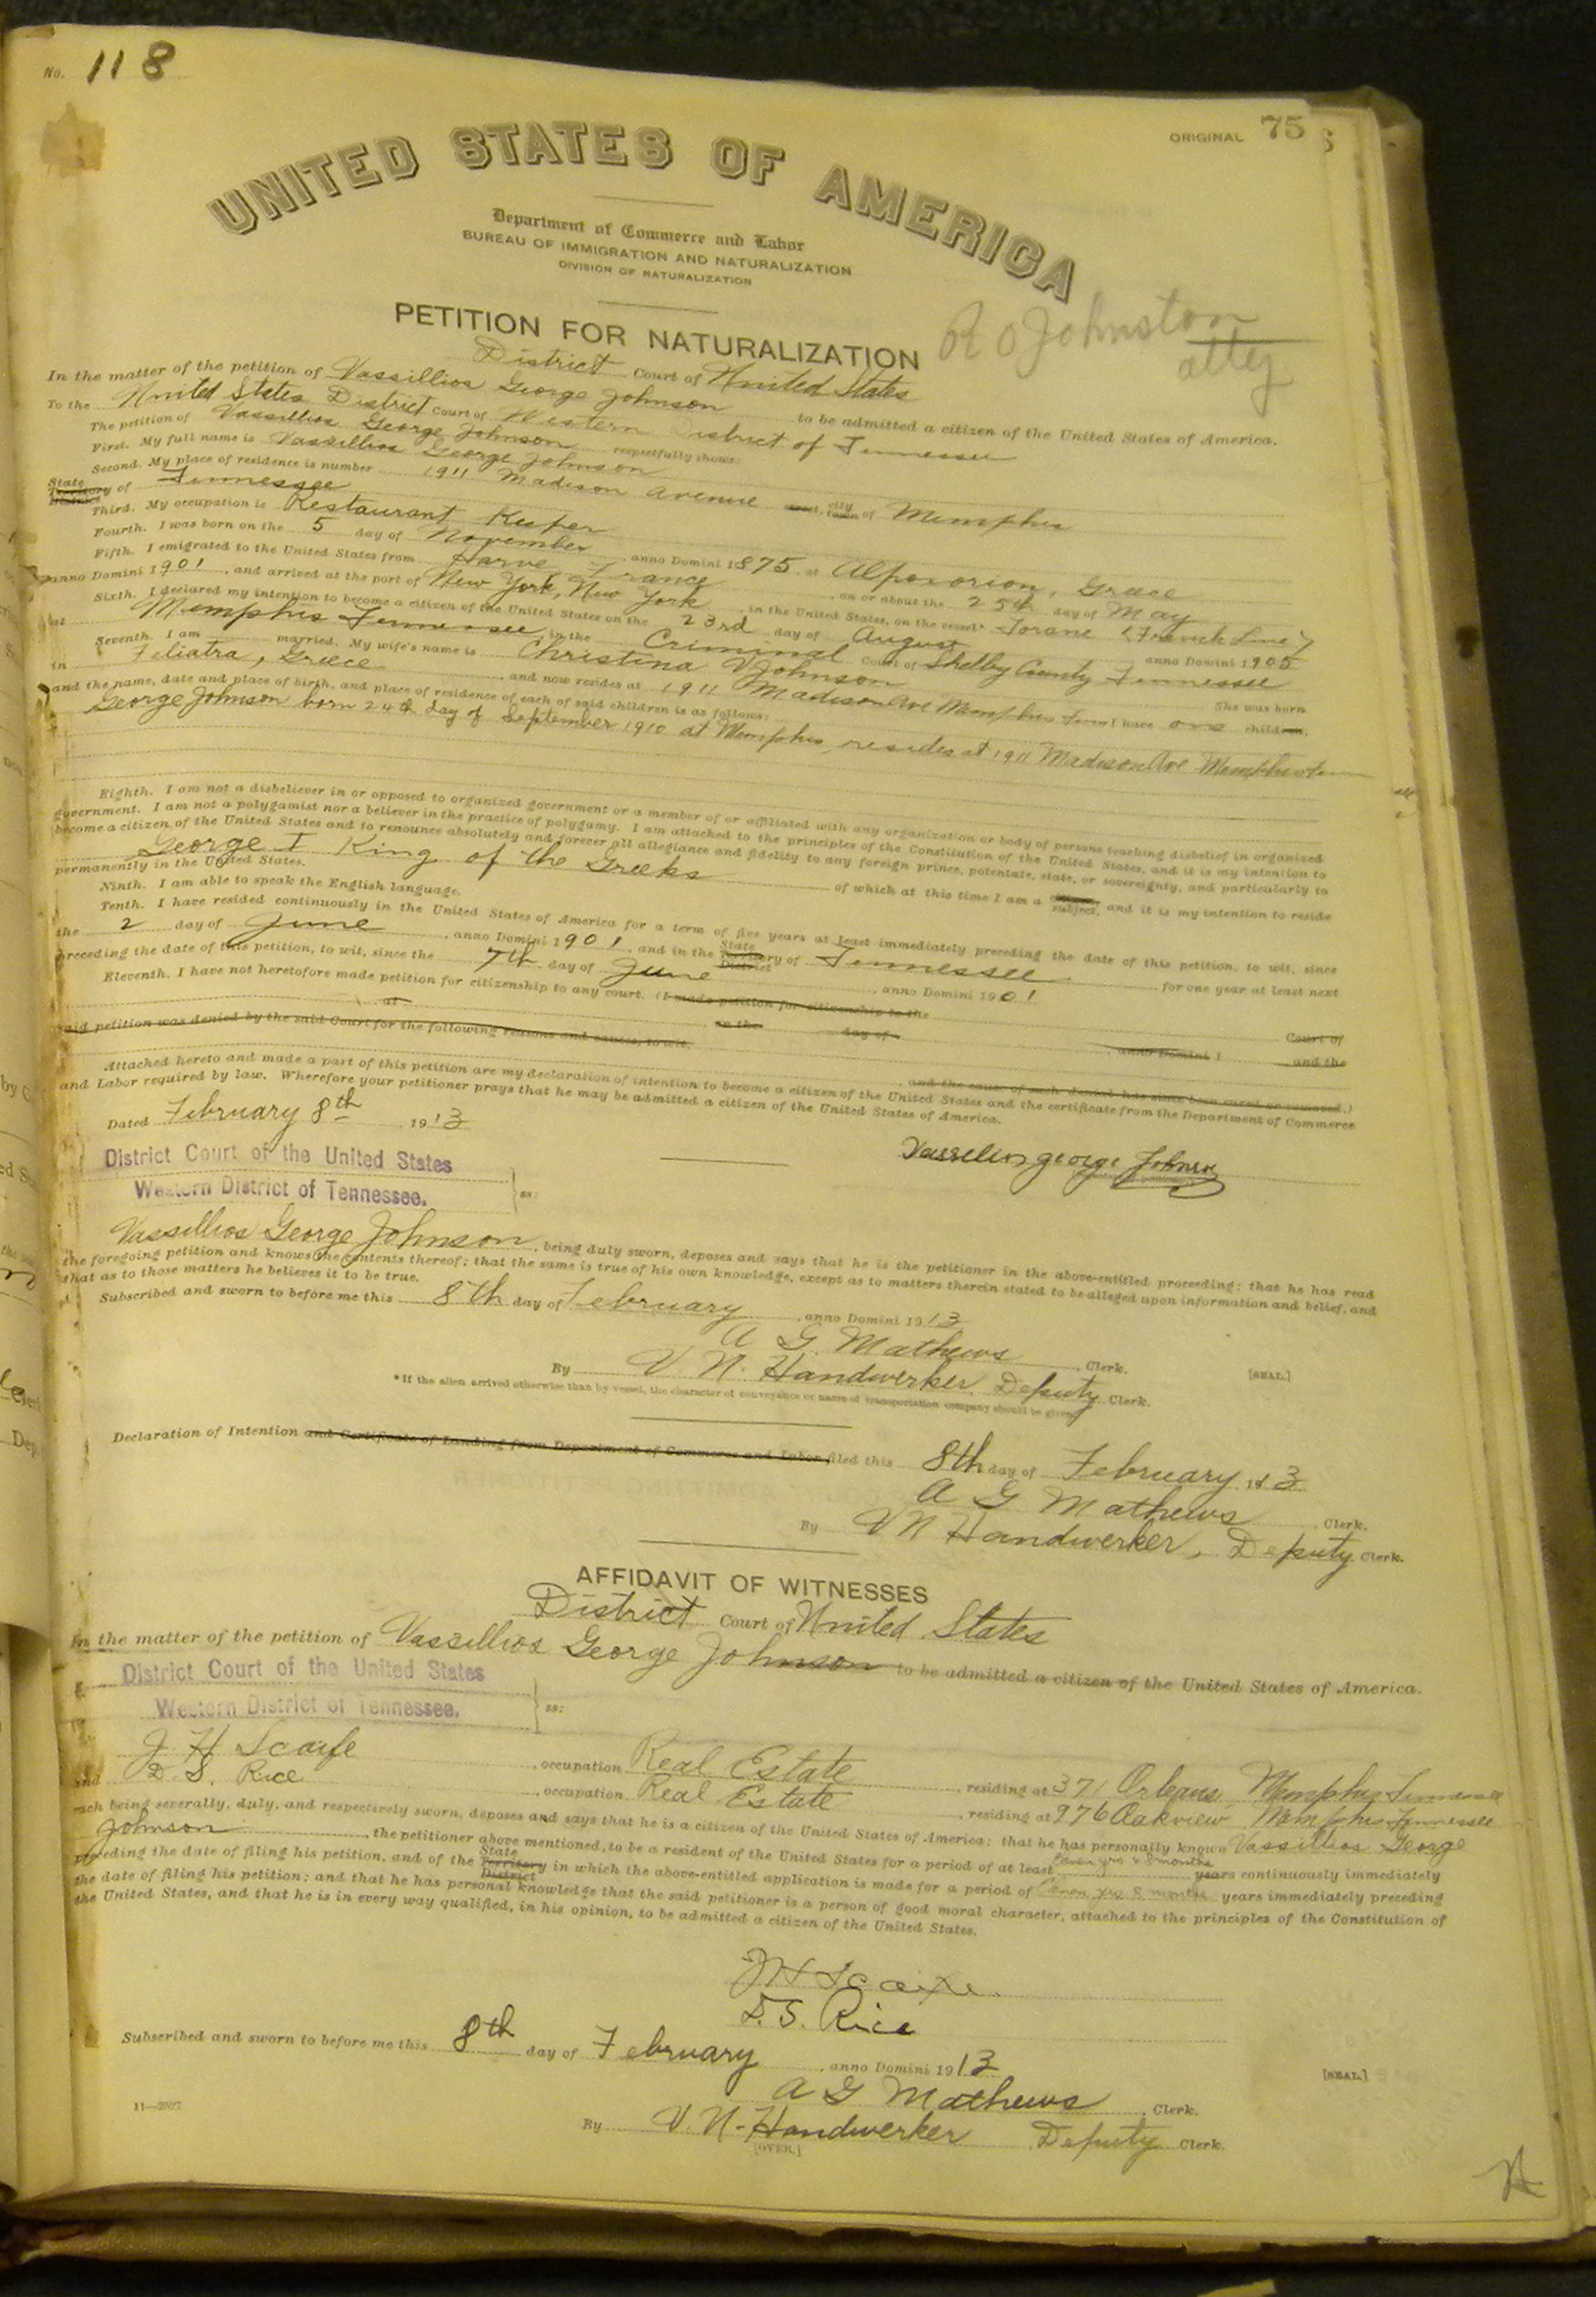 No. 118
ORIGINAL 75
UNITED STATES OF AMERICA
Department of Commerce and Labor
BUREAU OF IMMIGRATION AND NATURALIZATION
DIVISION OF NATURALIZATION
PETITION FOR NATURALIZATION
R O Johnston
atty
District Court of United States
In the matter of the petition of Vassillios George Johnson to be admitted a citizen of the United States of America.
To the United States District Court of Western District of Tennessee
The petition of Vassillios George Johnson respectfully shows:
First. My full name is Vassillios George Johnson
Second. My place of residence is number 1911 Madison Avenue city town of Memphis
State Territory District of Tennessee
Third. My occupation is Restaurant Keeper
Fourth. I was born on the 5 day of November anno Domini 1875 at Alpororion, Greece
Fifth. I emigrated to the United States from Harve France on or about the 25th day of May
anno Domini 1901, and arrived at the port of New York, New York in the United States, on the vessel* Lorane (French Line)
Sixth. I declared my intention to become a citizen of the United States on the 23rd day of August anno Domini 1905
at Memphis Tennessee, in the Criminal Court of Shelby County Tennessee
Seventh. I am married. My wife's name is Christina V Johnson She was born
in Feliatra, Greece and now resides at 1911 Madison Ave Memphis Tenn I have one child
and the name, date and place of birth, and place of residence of each of said children is as follows:
George Johnson born 24th day of September 1910 at Memphis, resides at 1911 Madison Ave Memphis Tenn
Eighth. I am not a disbeliever in or opposed to organized government or a member of or affiliated with any organization or body of persons teaching disbelief in organized
government. I am not a polygamist nor a believer in the practice of polygamy. I am attached to the principles of the Constitution of the United States, and it is my intention to
become a citizen of the United States and to renounce absolutely and forever all allegiance and fidelity to any foreign prince, potentate, state, or sovereignty, and particularly to
George I King of the Greeks of which at this time I am a subject, and it is my intention to reside
permanently in the United States.
Ninth. I am able to speak the English language.
Tenth. I have resided continuously in the United States of America for a term of five years at least immediately preceding the date of this petition, to wit, since
the 2 day of June, anno Domini 1901, and in the State Territory District of Tennessee for one year at least next
preceding the date of this petition, to wit, since the 7th day of June, anno Domini 1901
Eleventh. I have not heretofore made petition for citizenship to any court. (I made petition for citizenship to the Court of
at on the day of , anno Domini 1 and the
said petition was denied by the said Court for the following reasons and causes, to wit, and the cause of such denial has since been cured or removed.)
Attached hereto and made a part of this petition are my declaration of intention to become a citizen of the United States and the certificate from the Department of Commerce
and Labor required by law. Wherefore your petitioner prays that he may be admitted a citizen of the United States of America.
Dated February 8th 1913
Vasselios george Johnson
District Court of the United States
Western District of Tennessee. ss:
Vassillios George Johnson, being duly sworn, deposes and says that he is the petitioner in the above-entitled proceeding; that he has read
the foregoing petition and knows the contents thereof; that the same is true of his own knowledge, except as to matters therein stated to be alleged upon information and belief, and
that as to those matters he believes it to be true.
Subscribed and sworn to before me this 8th day of February, anno Domini 1913
A G Mathews, Clerk.
By V. N. Handwerker, Deputy Clerk. [SEAL.]
*If the alien arrived otherwise than by vessel, the character of conveyance or name of transportation company should be given.
Declaration of Intention and Certificate of Landing from Department of Commerce and Labor filed this 8th day of February, 1913
A G Mathews, Clerk.
By V N Handwerker, Deputy Clerk.
AFFIDAVIT OF WITNESSES
District Court of United States
In the matter of the petition of Vassillios George Johnson to be admitted a citizen of the United States of America.
District Court of the United States
Western District of Tennessee. ss:
J H Scaife, occupation Real Estate, residing at 371 Orleans Memphis Tennessee
and D. S. Rice, occupation Real Estate, residing at 976 Oakview Memphis Tennessee
each being severally, duly, and respectively sworn, deposes and says that he is a citizen of the United States of America; that he has personally known Vassillios George
Johnson, the petitioner above mentioned, to be a resident of the United States for a period of at least Eleven yrs & 8 months years continuously immediately
preceding the date of filing his petition, and of the State Territory District in which the above-entitled application is made for a period of Eleven yrs 8 months years immediately preceding
the date of filing his petition; and that he has personal knowledge that the said petitioner is a person of good moral character, attached to the principles of the Constitution of
the United States, and that he is in every way qualified, in his opinion, to be admitted a citizen of the United States.
J H Scaife
D. S. Rice
Subscribed and sworn to before me this 8th day of February, anno Domini 1913
[SEAL.]
A G Mathews, Clerk.
11—2027
By V. N. Handwerker Deputy Clerk.
[OVER.]